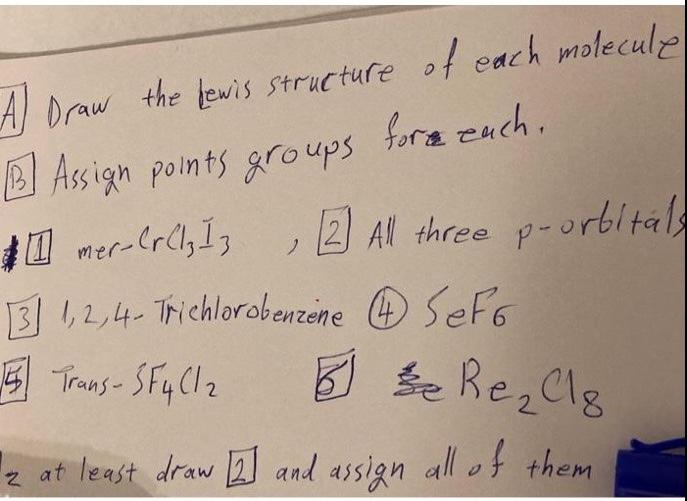 A Draw the Lewis structure of each molecule
B Assign points groups for each.
1 mer-CrCl3I3 , 2 All three p-orbitals
3 1,2,4-Trichlorobenzene 4 SeF6
5 Trans-SF4Cl2 6 Re2Cl8
at least draw 2 and assign all of them